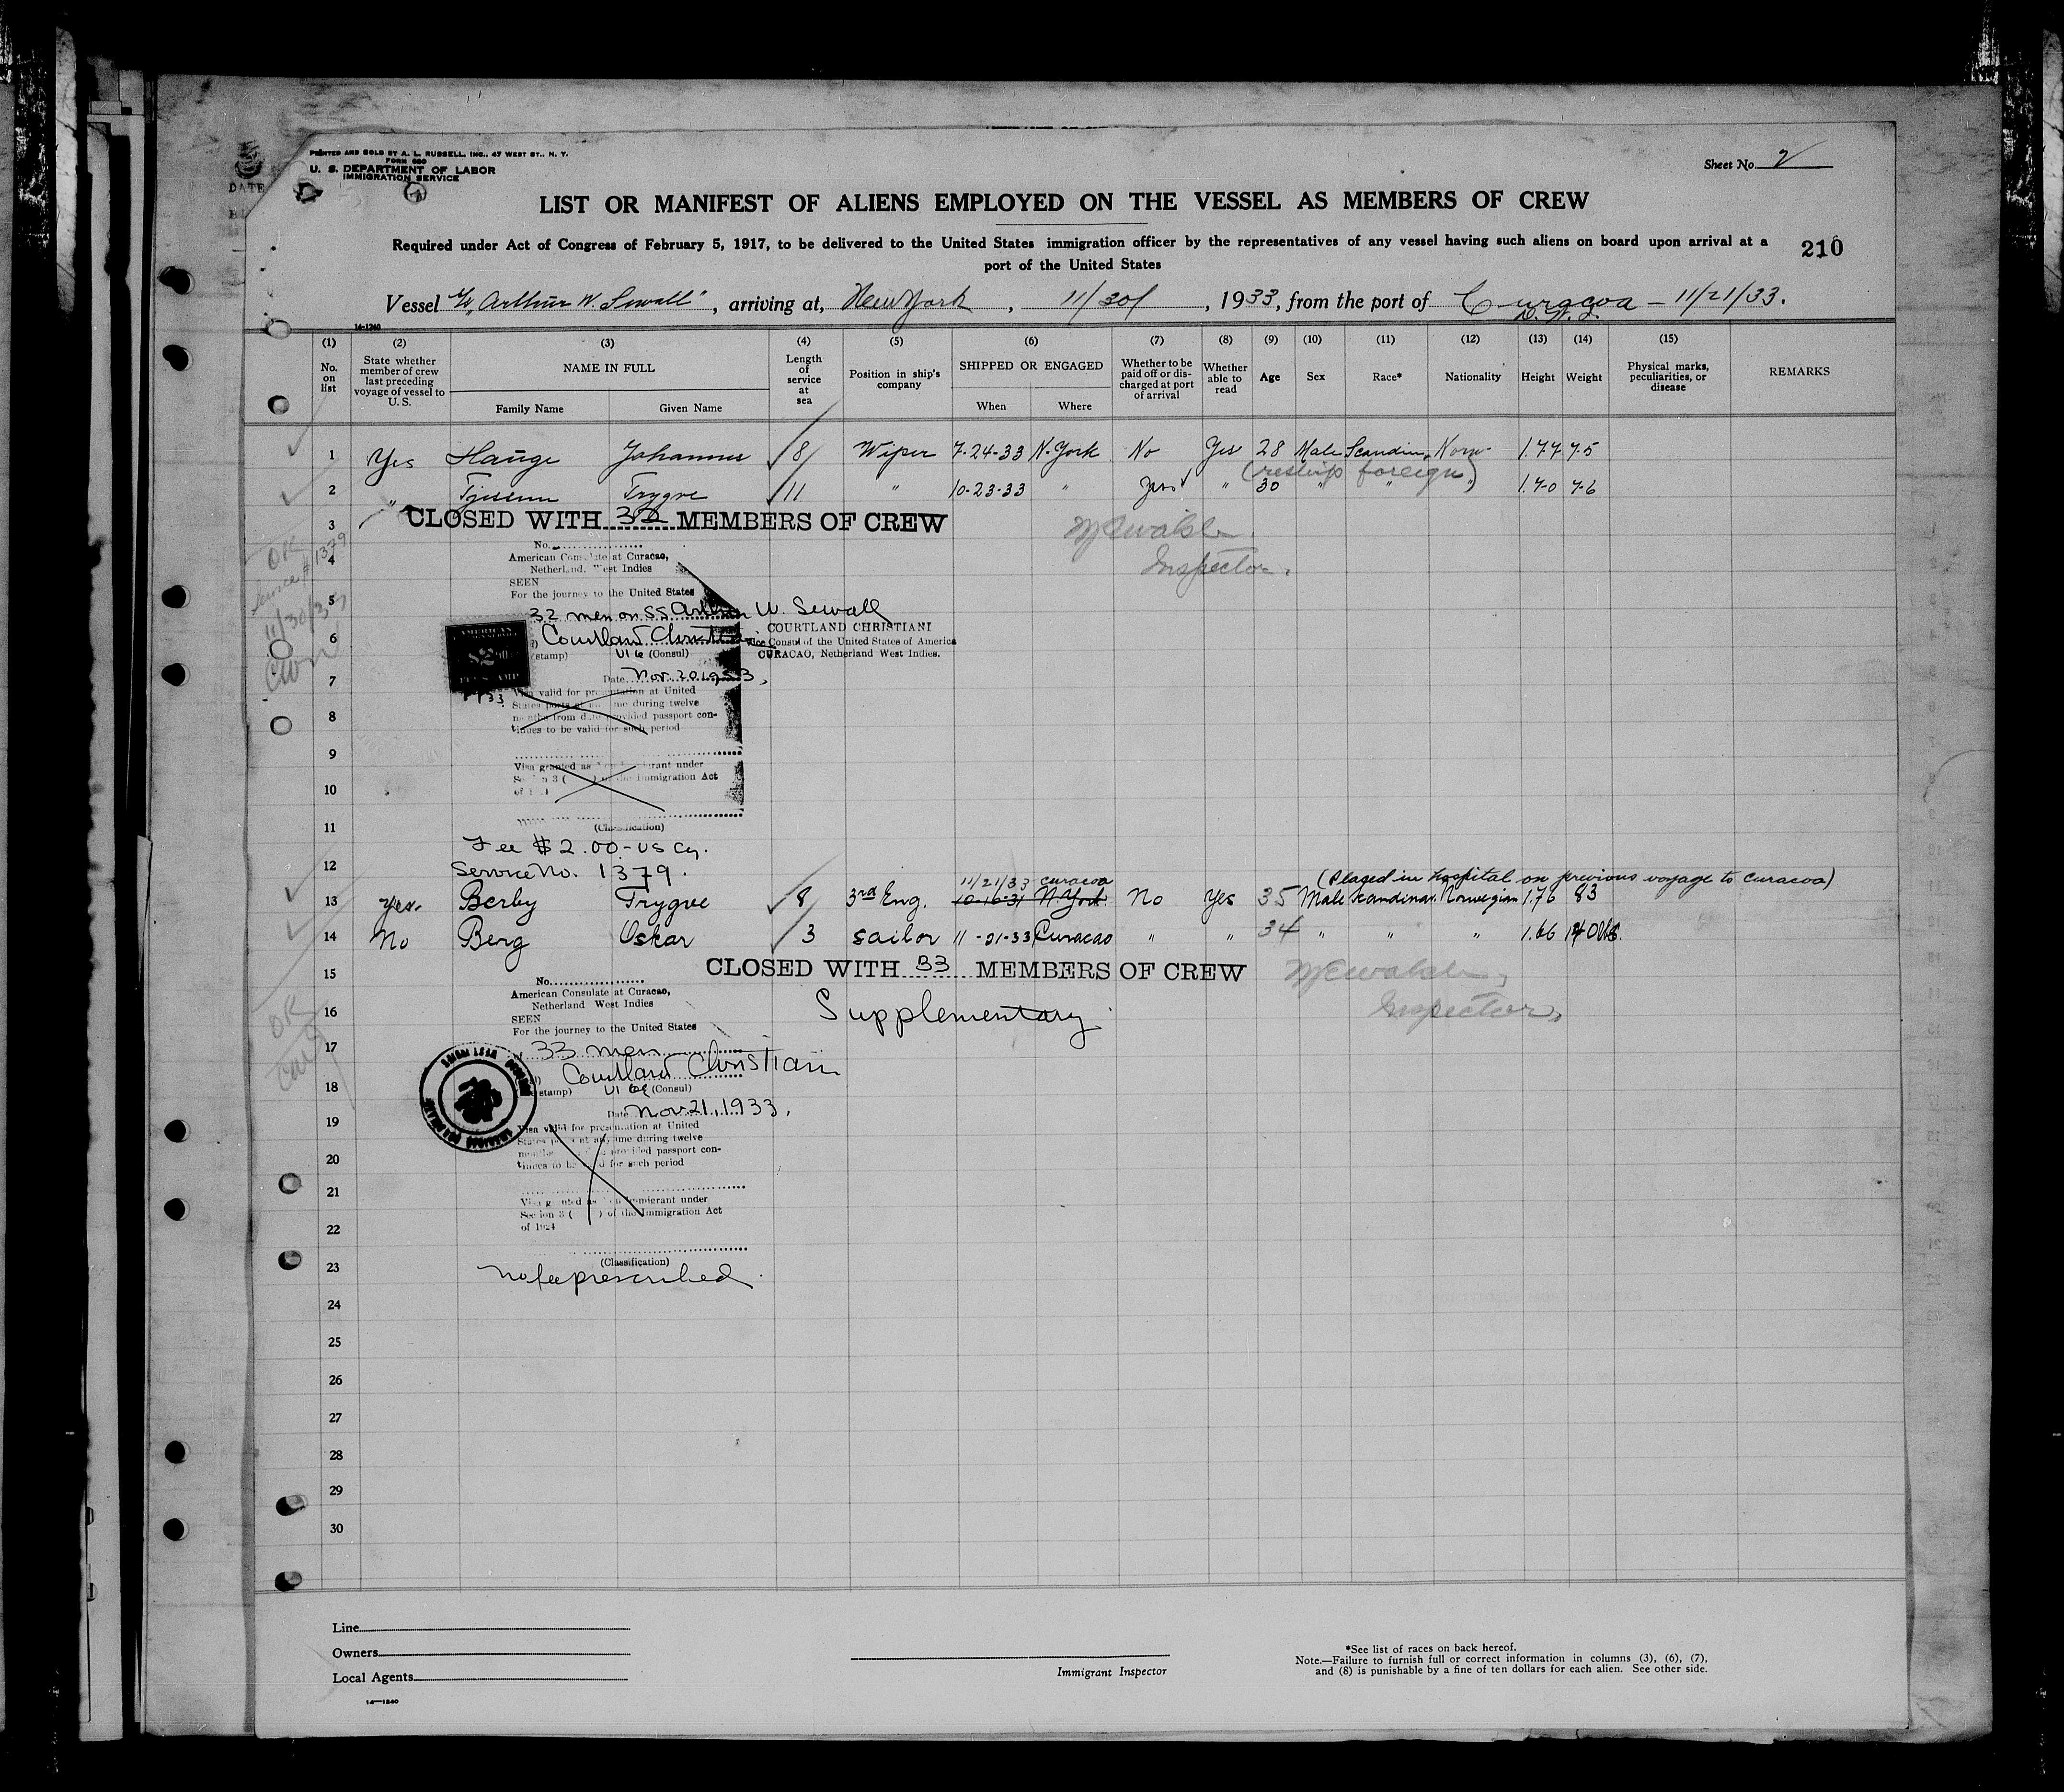 PRINTED AND SOLD BY A. L. RUSSELL, INC., 47 WEST ST., N. Y.
FORM 680
U. S. DEPARTMENT OF LABOR
IMMIGRATION SERVICE
DATE
Sheet No. 2
LIST OR MANIFEST OF ALIENS EMPLOYED ON THE VESSEL AS MEMBERS OF CREW
Required under Act of Congress of February 5, 1917, to be delivered to the United States immigration officer by the representatives of any vessel having such aliens on board upon arrival at a
port of the United States
210
Vessel "Arthur W. Sewall", arriving at, New York, 11/30/, 1933, from the port of Curacoa - 11/21/33.
D. W. I.
14-1240
(1) (2) (3) (4) (5) (6) (7) (8) (9) (10) (11) (12) (13) (14) (15)
No. on list
State whether member of crew last preceding voyage of vessel to U. S.
NAME IN FULL
Family Name
Given Name
Length of service at sea
Position in ship's company
SHIPPED OR ENGAGED
When
Where
Whether to be paid off or discharged at port of arrival
Whether able to read
Age
Sex
Race*
Nationality
Height
Weight
Physical marks, peculiarities, or disease
REMARKS
1 Yes Hauge Johannes 8 Wiper 7-24-33 N. York No Yes 28 Male Scandin. Norw. 1.77 75
(reship foreign)
2 " Trygve 11 " 10-23-33 " Yes " 30 " " " 1.70 76
3 CLOSED WITH 32 MEMBERS OF CREW
Inspector.
OK
Service # 1379
11/30/33
No.
American Consulate at Curacao,
Netherland West Indies
4
SEEN
For the journey to the United States
5
32 men on SS Arthur W. Sewall
COURTLAND CHRISTIANI
6 Courtland Christiani
Vice Consul of the United States of America
(stamp) Vice (Consul)
CURACAO, Netherland West Indies.
AMERICAN
$2.00
7 Date Nov. 20, 1933,
Visa valid for presentation at United
States ports at any time during twelve
8 months from date provided passport con-
tinues to be valid for such period
9
Visa granted as Non-Immigrant under
Section 3 ( ) of the Immigration Act
10 of 1924
11 (Classification)
Fee $2.00 - US Cy.
12 Service No. 1379.
11/21/33 Curacoa
(Placed in hospital on previous voyage to Curacoa)
13 Yes. Berby Trygve 8 3rd Eng. 10-16-31 N. York No Yes 35 Male Scandinav. Norwegian 1.76 83
14 No Berg Oskar 3 sailor 11-21-33 Curacao " " 34 " " " 1.66 140 lbs.
CLOSED WITH 33 MEMBERS OF CREW
15
Inspector,
No.
American Consulate at Curacao,
Netherland West Indies
16 Supplementary
OK
SEEN
For the journey to the United States
17 33 men
Courtland Christiani
18 (stamp) Vice (Consul)
Date Nov. 21, 1933,
19 Visa valid for presentation at United
States ports at any time during twelve
20 months provided passport con-
tinues to be valid for such period
21
Visa granted as Non-Immigrant under
Section 3 ( ) of the Immigration Act
22 of 1924
(Classification)
23 no fee prescribed
24
25
26
27
28
29
30
Line
Owners
Local Agents
14-1240
Immigrant Inspector
*See list of races on back hereof.
Note.—Failure to furnish full or correct information in columns (3), (6), (7),
and (8) is punishable by a fine of ten dollars for each alien. See other side.